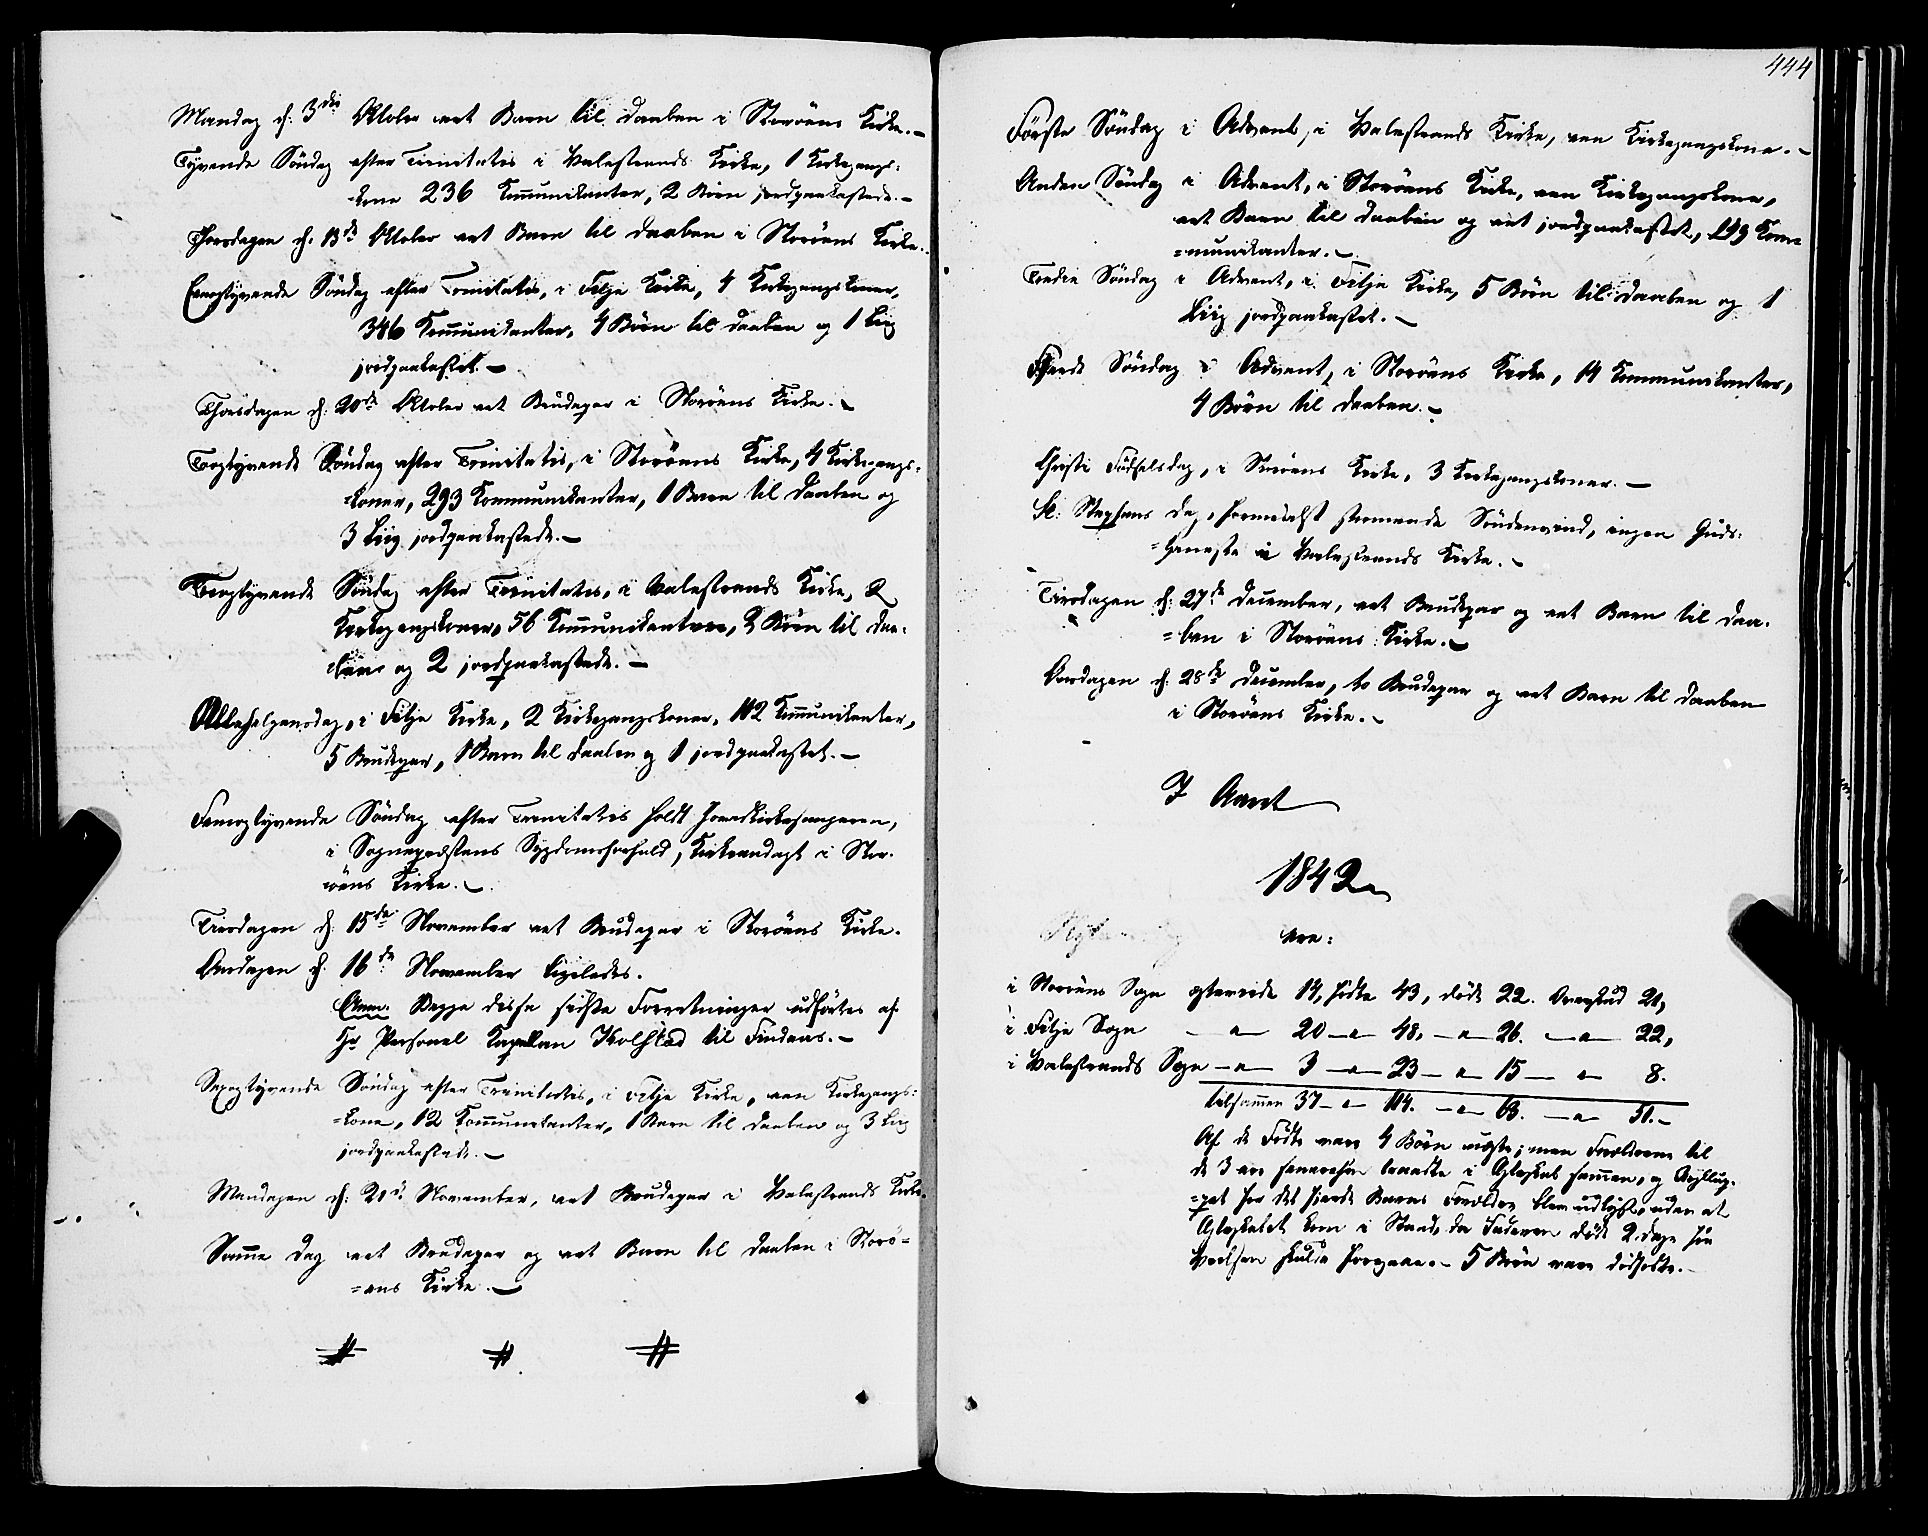 Mandag d: 3die October eet Barn til Daaben i Storöens Kirke.–
Tyvende Söndag efter Trinitatis i Valestrands Kirke, 1 Kirkegangs:
kone 236 Kommunikanter, 2 Börn jordpaakastede.–
Thorsdagen d. 13de October eet Barn til Daaben i Storöens Kirke.
Eenogtyvende Söndag efter Trinitatis, i Fitje Kirke, 4 Kirkegangskoner,
346 Kommunikanter, 4 Börn til Daaben og 1 Liig
jordpaakastet.–
Thorsdagen d: 20de October eet Brudepar i Storöens Kirke.–
Toogtyvende Söndag efter Trinitatis, i Storöens Kirke, 4 Kirkegangs:
=koner, 293 Kommunikanter, 1 Barn til Daaben og
3 Liig jordpaakastede.–
Treogtyvende Söndag efter Trinitatis, i Valestrands Kirke, 2
Kirkegangskoner, 56 Kommunikantere, 2 Börn til Daa:
ben og 2 jordpaakastede.–
Allehelgensdag, i Fitje Kirke, 2 Kirkegangskoner, 112 Kommunikanter,
5 Brudepar, 1 Barn til Daaben og 1 jordpaakastet.–
Femogtyvende Söndag efter Trinitatis holdt Hovedkirkesangeren,
i Sognepræstens Sygdomsforfald, Kirkeandagt i Stor-
öens Kirke.–
Tirsdagen d: 15de November eet Brudepar i Storöens Kirke.
Onsdagen d: 16de November ligeledes.
Anm: Begge disse sidste Forretninger udförtes af
Hr Personel Kapellan Kolstad til Findaas.–
Sexogtyvende Söndag efter Trinitatis, i Fitje Kirke, een Kirkegangs:
=kone, 12 Kommunikanter, 1 Barn til Daaben og 3 Liig
jordpaakastede.–
Mandagen d: 21de November, eet Brudepar i Valestrands Kirke.
Samme Dag eet Brudepar og eet Barn til Daaben i Storö=
=ens Kirke.–
444
Förste Söndag i Advent, i Valestrands Kirke, een Kirkegangskone.–
Anden Söndag i Advent, i Storöens Kirke, een Kirkegangskone,
eet Barn til Daaben og eet jordpaakastet, 199 Kom=
=munikanter.–
Tredie Söndag i Advent, i Fitje Kirke, 5 Börn til Daaben og 1
Liig jordpaakastet.–
Fjerde Söndag i Advent, i Storöens Kirke, 14 Kommunikanter,
4 Börn til Daaben.–
Christi Födselsdag, i Storöens Kirke, 3 Kirkegangskoner.–
St: Stephans Dag, formedelst stormende Söndenvind, ingen Guds:
=tjeneste i Valestrands Kirke.–
Tirsdagen d: 27de December, eet Brudepar og eet Barn til Daa:
=ben i Storöens Kirke.–
Onsdagen d: 28de December, to Brudepar og eet Barn til Daaben
i Storöens Kirke.–
I Aaret
1842
ere:
i Storöens Sogn egteviede 14, födte 43, döde 22. Overskud 21,
i Fitje Sogn –"– 20 –"– 48, –"– 26. –"– 22,
i Valestrands Sogn –"– 3 –"– 23 –"– 15 –"– 8.
tilsammen 37 –"– 114. –"– 63. –"– 51.–
Af de Födte vare 4 Börn uægte; men Forældrene til
de 3 ere senerehen traadte i Egteskab sammen, og
for det fjerde Barns Forældre blev udlyst, uden at
Egteskabet kom i Stand, da Faderen döde 2 Dage för
Vielsen skulde foregaae.– 5 Börn vare dödfödte.–